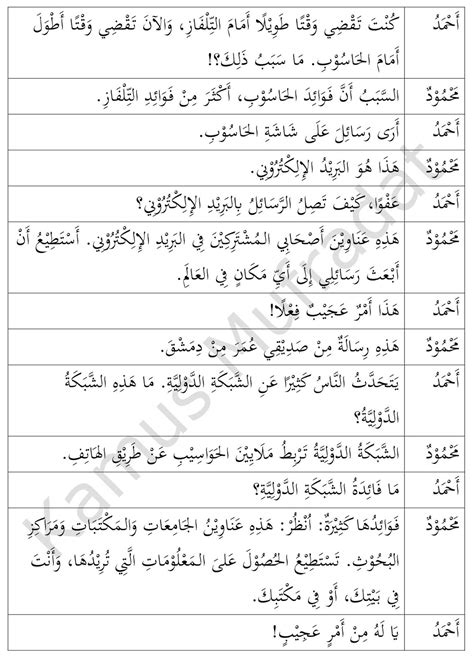 أَحْمَدُ كُنْتَ تَقْضِي وَقْتًا طَوِيْلًا أَمَامَ التِّلْفَازِ، وَالآنَ تَقْضِي وَقْتًا أَطْوَلَ
أَمَامَ الحَاسُوْبِ. مَا سَبَبُ ذَلِكَ؟!
مَحْمُوْدٌ السَّبَبُ أَنَّ فَوَائِدَ الحَاسُوْبِ، أَكْثَرَ مِنْ فَوَائِدِ التِّلْفَازِ.
أَحْمَدُ أَرَى رَسَائِلَ عَلَى شَاشَةِ الحَاسُوْبِ.
مَحْمُوْدٌ هَذَا هُوَ البَرِيْدُ الإِلِكْتُرُوْنِي.
أَحْمَدُ عَفْوًا، كَيْفَ تَصِلُ الرَّسَائِلُ بِالبَرِيْدِ الإِلِكْتُرُوْنِي؟
مَحْمُوْدٌ هَذِهِ عَنَاوِيْنَ أَصْحَابِي المُشْتَرِكِيْنَ فِي البَرِيْدِ الإِلِكْتُرُوْنِي. أَسْتَطِيْعُ أَنْ
أَبْعَثَ رَسَائِلِي إِلَى أَيِّ مَكَانٍ فِي العَالَمِ.
أَحْمَدُ هَذَا أَمْرٌ عَجِيْبٌ فِعْلًا!
مَحْمُوْدٌ هَذِهِ رِسَالَةٌ مِنْ صَدِيْقِي عُمَرَ مِنْ دِمَشْقَ.
أَحْمَدُ يَتَحَدَّثُ النَّاسُ كَثِيْرًا عَنِ الشَّبَكَةِ الدَّوْلِيَّةِ. مَا هَذِهِ الشَّبَكَةُ
الدَّوْلِيَّةُ؟
مَحْمُوْدٌ الشَّبَكَةُ الدَّوْلِيَّةُ تَرْبِطُ مَلَايِيْنَ الحَوَاسِيْبِ عَنْ طَرِيْقِ الهَاتِفِ.
أَحْمَدُ مَا فَائِدَةُ الشَّبَكَةِ الدَّوْلِيَّةِ؟
مَحْمُوْدٌ فَوَائِدُهَا كَثِيْرَةٌ: اُنْظُرْ: هَذِهِ عَنَاوِيْنُ الجَامِعَاتِ وَالمَكْتَبَاتِ وَمَرَاكِزِ
البُحُوْثِ. تَسْتَطِيْعُ الحُصُوْلَ عَلَىَ المَعْلُوْمَاتِ الَّتِي تُرِيْدُهَا، وَأَنْتَ
فِي بَيْتِكَ، أَوْ فِي مَكْتَبِكَ.
أَحْمَدُ يَا لَهُ مِنْ أَمْرٍ عَجِيْبٍ!
Kamus Mufradat